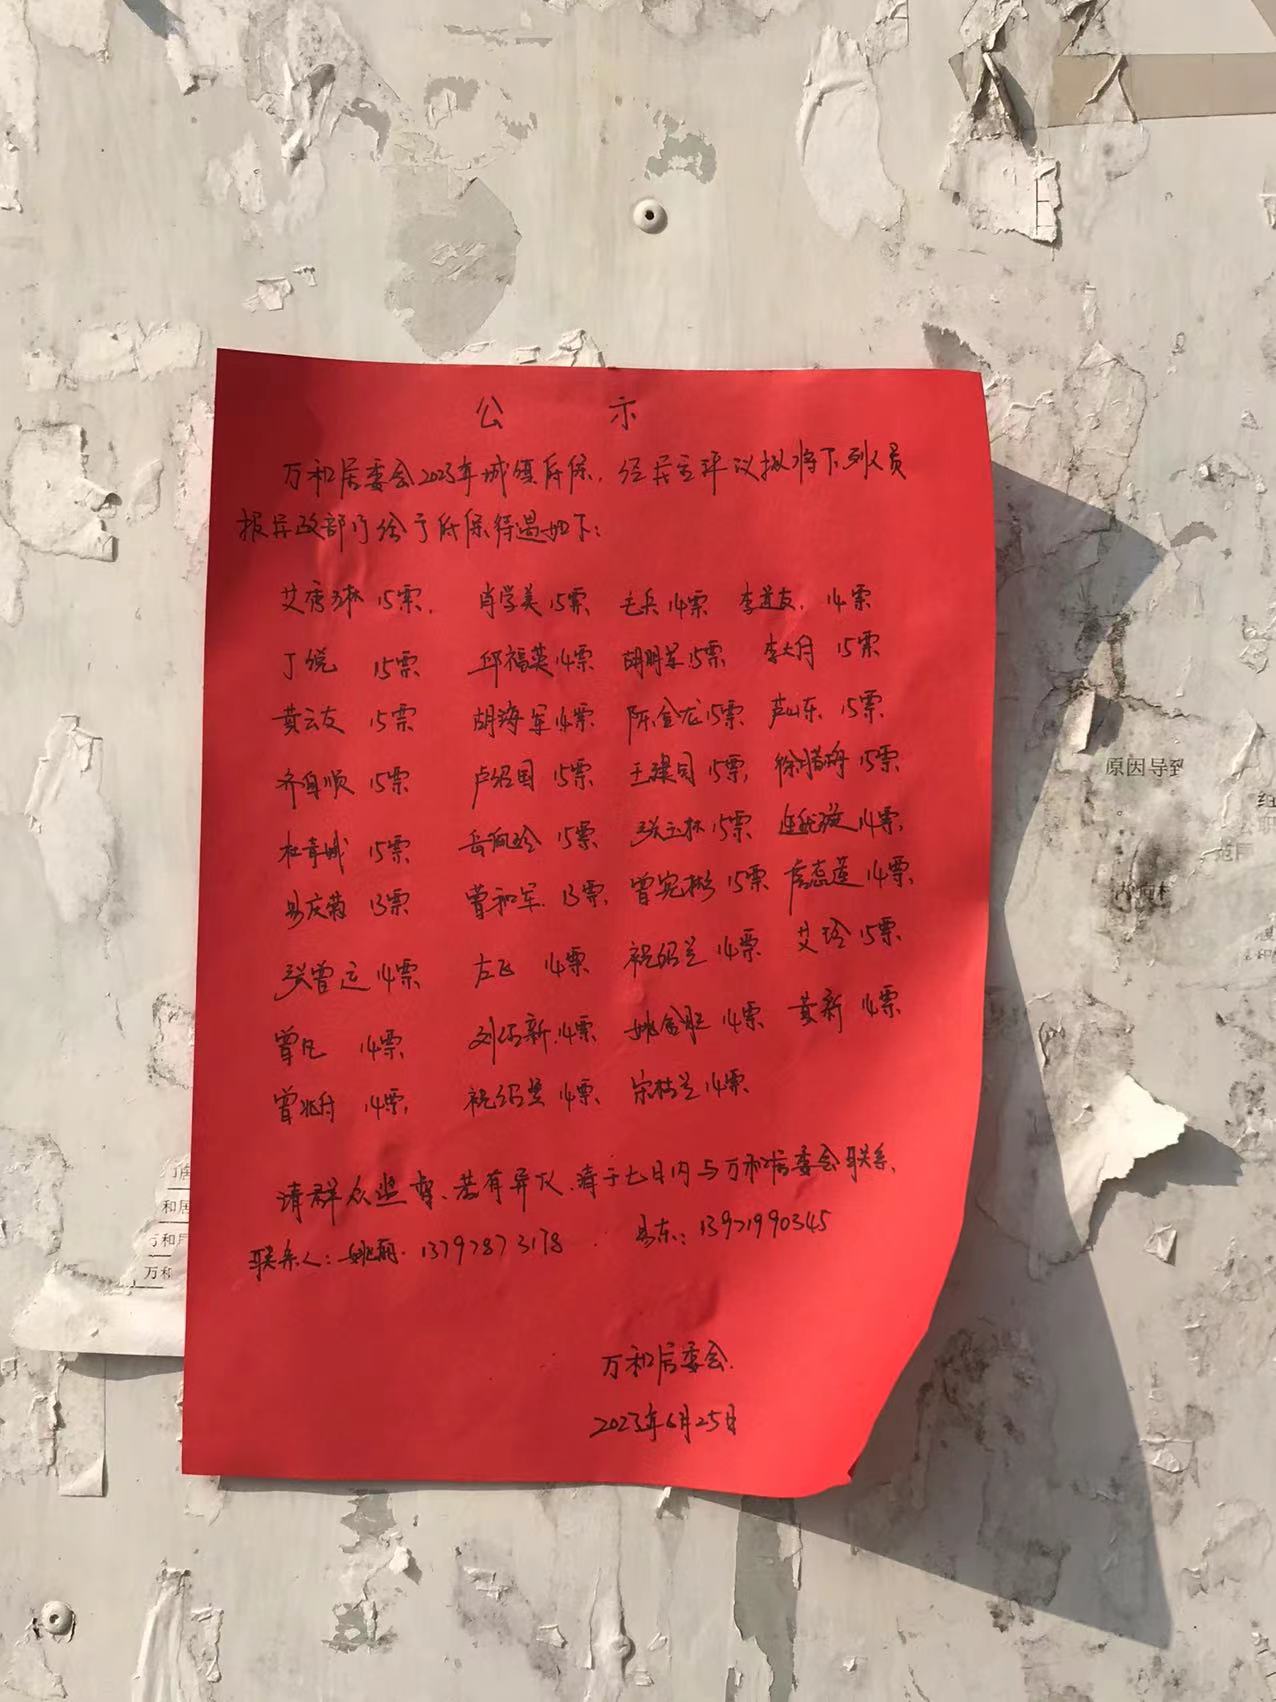 公 示
万和居委会2023年城镇低保，经民主评议拟将下列人员
报民政部门给予低保待遇如下：
艾唐林 15票， 肖学美 15票 毛兵 14票 李道友， 14票
丁悦 15票 邱福英 14票 胡明军 15票 李大舟 15票
黄云友 15票 胡海军 14票 陈金龙 15票 芦山东 15票
齐自顺 15票 卢绍国 15票 王建国 15票， 徐腊梅 15票
杜青城 15票 岳凤玲 15票 张玉林 15票 14票，
易庆菊 13票 曾和军 13票， 曾宪彬 15票 唐蕊莲 14票，
张曾运 14票 左飞 14票 祝绍兰 14票 艾玲 15票
曾凡 14票 刘绍新 14票 姚金旺 14票 黄新 14票
曾兆舟 14票， 祝绍英 14票 宋桂兰 14票
请群众监督、若有异议、请于七日内与万和居委会联系、
联系人：姚丽· 13797873178 易东：13971990345
万和居委会
2023年6月25日
原因导到
和居
万和居
万和